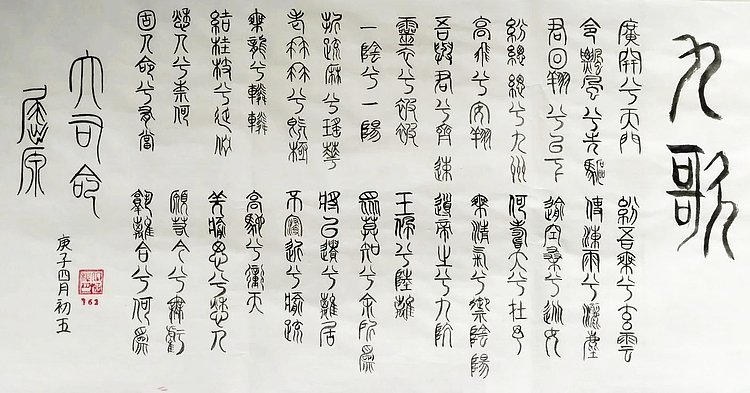 九歌
廣開兮天門 紛吾乘兮玄雲
令飄風兮先驅 使涷雨兮灑塵
君回翔兮以下 逾空桑兮從女
紛總總兮九州 何壽夭兮在予
高飛兮安翔 乘清氣兮禦陰陽
吾與君兮齊速 導帝之兮九阬
靈衣兮被被 玉佩兮陸離
一陰兮一陽 眾莫知兮余所為
折疏麻兮瑤華 將以遺兮離居
老冉冉兮既極 不寖近兮愈疏
乘龍兮轔轔 高馳兮衝天
結桂枝兮延佇 羌愈思兮愁人
愁人兮奈何 願若今兮無虧
固人命兮有當 孰離合兮何為
大司命
屈原
庚子四月初五